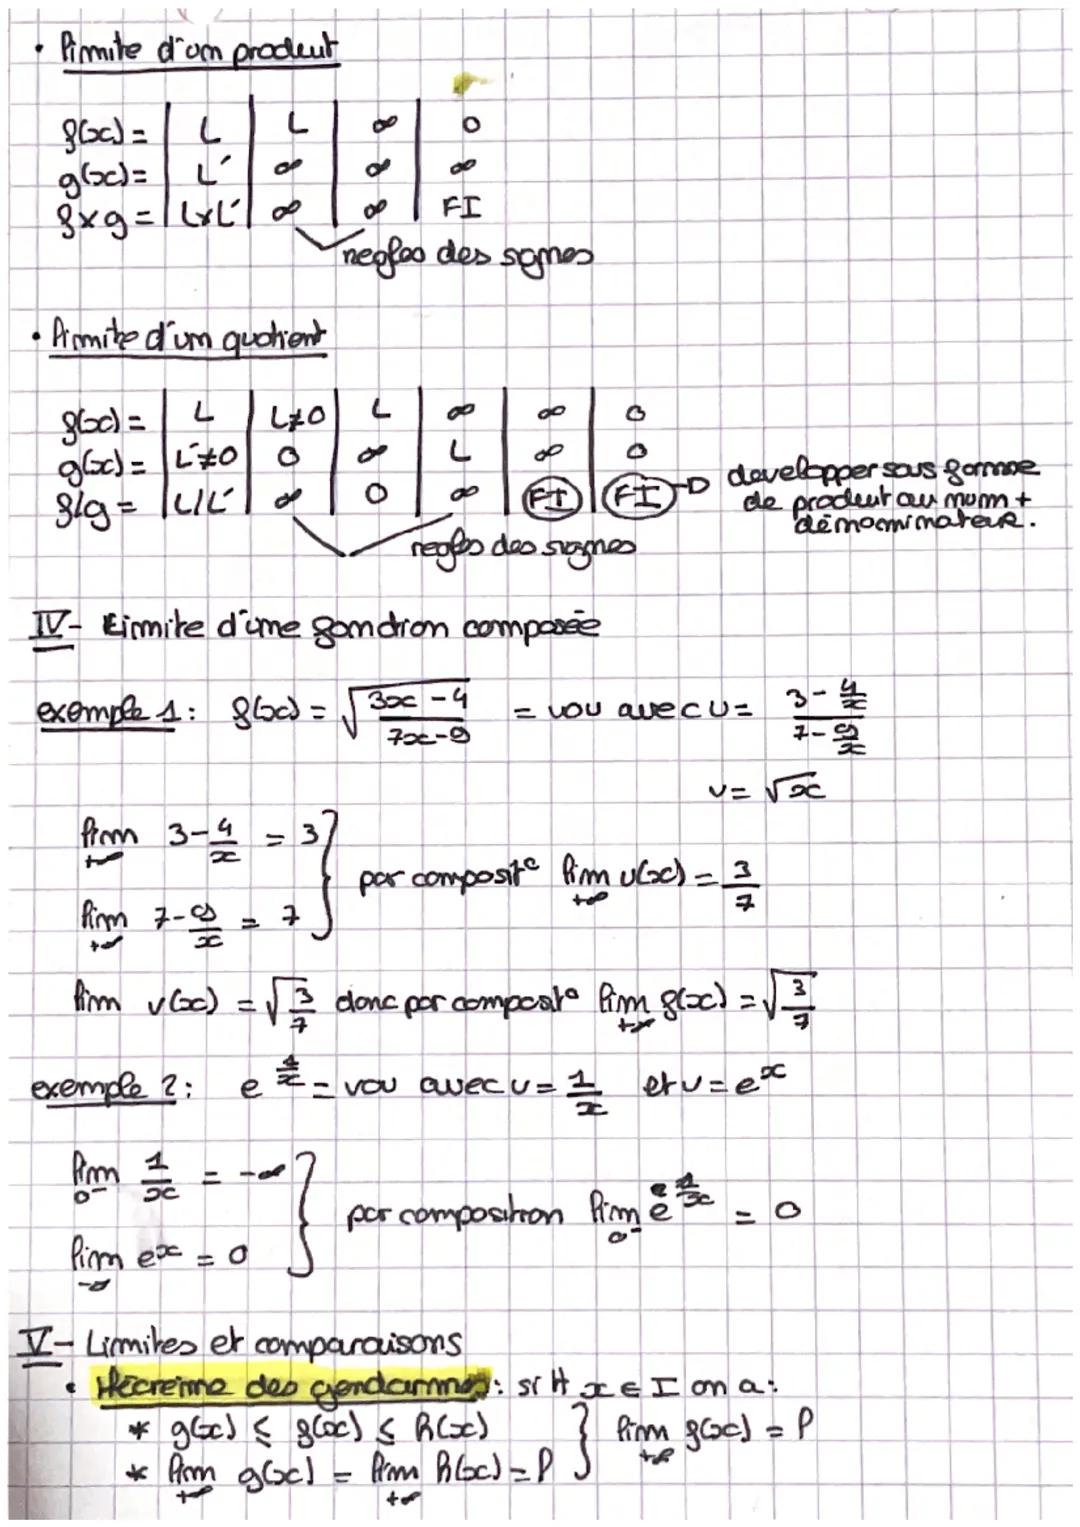 • limite d'un produit
f(x) = | L | L | ∞ | 0
g(x) = | L' | ∞ | ∞ | ∞
f×g = | L×L' | ∞ | ∞ | FI
regles des signes
• limite d'un quotient
f(x) = | L | L≠0 | L | ∞ | ∞ | 0
g(x) = | L'≠0 | 0 | ∞ | L | ∞ | 0
f/g = | L/L' | ∞ | 0 | ∞ | FI | FI → developper sous forme de produit au num + dénominateur.
regles des signes
IV- Limite d'une fonction composée
exemple 1: f(x) = √((3x - 4)/(7x - 9)) = vou avec u = (3 - 4/x)/(7 - 9/x)
v = √x
lim +∞ 3 - 4/x = 3
par composit° lim +∞ u(x) = 3/7
lim +∞ 7 - 9/x = 7
lim v(x) = √(3/7) donc par composit° lim +∞ f(x) = √(3/7)
exemple 2: e^(1/x) = vou avec u = 1/x et v = e^x
lim 0⁻ 1/x = -∞
par composition lim 0⁻ e^(1/x) = 0
lim -∞ e^x = 0
V- Limites et comparaisons
• théoreme des gendarmes: si ∀ x ∈ I on a:
* g(x) ≤ f(x) ≤ h(x) } lim +∞ f(x) = l
* lim +∞ g(x) = lim +∞ h(x) = l